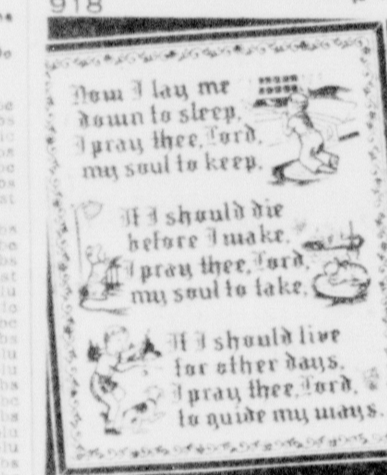 918
Now I lay me
down to sleep,
I pray thee, Lord,
my soul to keep.
If I should die
before I wake,
I pray thee, Lord,
my soul to take.
If I should live
for other days,
I pray thee, Lord,
to guide my ways.